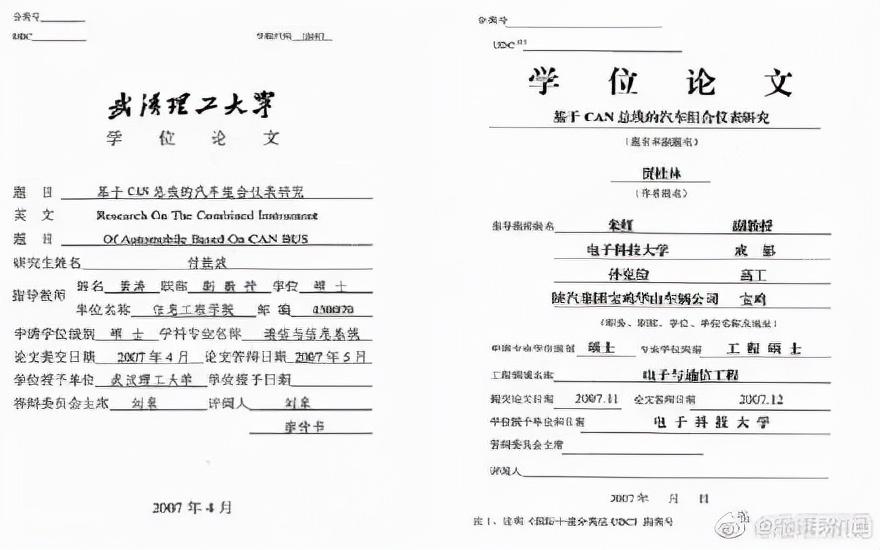 分类号
UDC
武汉理工大学
学 位 论 文
题 目 基于 CAN 总线的汽车组合仪表研究
英 文 Research On The Combined Instrument
题 目 Of Automobile Based On CAN BUS
研究生姓名
指导教师 姓名 职称 副教授 学位 硕士
单位名称 信息工程学院 邮编 430070
申请学位级别 硕士 学科专业名称 通信与信息系统
论文提交日期 2007年4月 论文答辩日期 2007年5月
学位授予单位 武汉理工大学 学位授予日期
答辩委员会主席 刘泉 评阅人 刘泉
2007年4月
分类号
UDC
学 位 论 文
基于 CAN 总线的汽车组合仪表研究
(题名和副题名)
贾桂林
(作者姓名)
指导教师姓名 副教授
电子科技大学 成都
孙克俭 高工
陕汽集团宝鸡华山车辆公司 宝鸡
(职务、职称、学位、单位名称及地址)
申请专业学位级别 硕士 专业学位类别 工程硕士
工程领域名称 电子与通信工程
提交论文日期 2007.11 论文答辩日期 2007.12
学位授予单位和日期 电子科技大学
答辩委员会主席
评阅人
2007年 月 日
注1:注明《国际十进分类法UDC》的类号